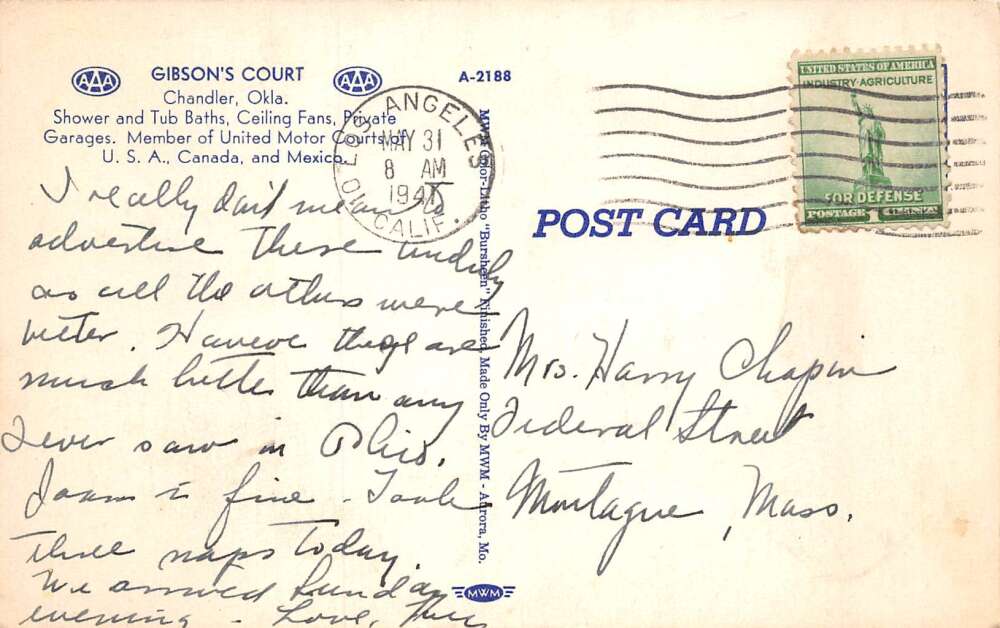 AAA GIBSON'S COURT AAA
Chandler, Okla.
Shower and Tub Baths, Ceiling Fans, Private
Garages. Member of United Motor Courts of
U. S. A., Canada, and Mexico.
A-2188
I really don't mean to
advertise these unduly
as all the others were
better. However these are
much better than any
I ever saw in Ohio.
Joan is fine - Took
three naps today.
We arrived Sunday
evening - Love,
MWM Color-Litho "Bursheen" Finished, Made Only By MWM - Aurora, Mo.
MWM
LOS ANGELES
MAY 31
8 AM
1941
CALIF.
UNITED STATES OF AMERICA
INDUSTRY·AGRICULTURE
FOR DEFENSE
POSTAGE 1 CENT
POST CARD
Mrs. Harry Chapin
Federal Street
Montague, Mass.